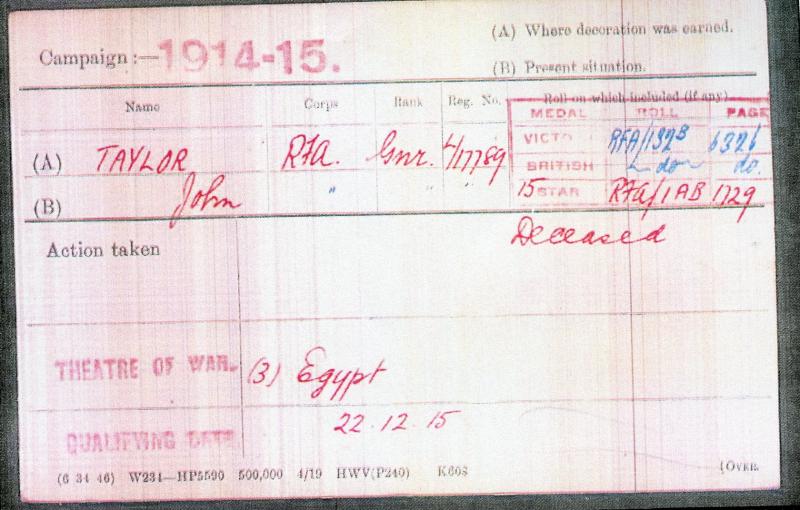 (A) Where decoration was earned.
Campaign :— 1914-15.
(B) Present situation.
Name Corps Rank Reg. No. Roll on which included (if any)
MEDAL ROLL PAGE
(A) TAYLOR RFA. Gnr. L/17789 VICTO RFA/132B 6326
BRITISH — do — do.
(B) John " " " 15 STAR RFA/1AB 1729
Deceased
Action taken
THEATRE OF WAR. (3) Egypt
QUALIFYING DATE 22.12.15
(6 34 46) W234—HP5590 500,000 4/19 HWV(P240) K608 [OVER.